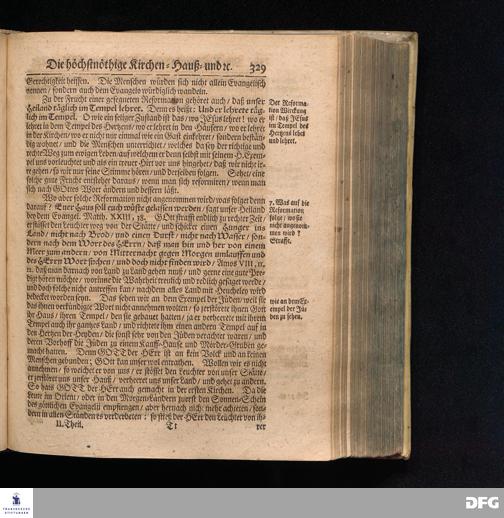 Die höchstnöthige Kirchen- Hauß- und ꝛc. 329
Gerechtigkeit heissen. Die Menschen würden sich nicht allein Evangelisch
nennen / sondern auch dem Evangelo würdiglich wandeln.
Zu der Frucht einer gesegneten Reformation gehöret auch / daß unser
Heiland täglich im Tempel lehret. Denn es heißt: Und er lehrete täg-
lich im Tempel. O wie ein seliger Zustand ist das / wo JEsus lehret! wo er
lehret in dem Tempel des Hertzens / wo er lehret in den Häusern / wo er lehret
in der Kirchen / wo er nicht nur einmal wie ein Gast einkehret / sondern bestän-
dig wohnet / und die Menschen unterrichtet / welches da sey der richtige und
rechte Weg zum ewigen Leben / auf welchem er denn selbst mit seinem H. Exem-
pel uns vorleuchtet und als ein treuer Hirt vor uns hingehet / daß wir nicht ir-
re gehen / so wir nur seine Stimme hören / und derselben folgen. Sehet / eine
solche gute Frucht entstehet daraus / wenn man sich reformiren / wenn man
sich nach GOttes Wort ändern und bessern läßt.
Wo aber solche Reformation nicht angenommen wird / was folget denn
darauf? Euer Haus soll euch wüste gelassen werden / sagt unser Heiland
bey dem Evangel. Matth. XXIII, 38. GOtt strafft endlich zu rechter Zeit /
er stösset den Leuchter weg von der Stätte / und schicket einen Hunger ins
Land / nicht nach Brod / und einen Durst / nicht nach Wasser / son-
dern nach dem Wort des HErrn / daß man hin und her von einem
Meer zum andern / von Mitternacht gegen Morgen umlauffen und
des HErrn Wort suchen / und doch nicht finden wird / Amos VIII, 11.
12. daß man darnach von Land zu Land gehen muß / und gerne eine gute Pre-
digt hören möchte / worinne die Wahrheit treulich und redlich gesaget werde /
und doch solche nicht antreffen kan / nachdem alles Land mit Heucheley wird
bedecket worden seyn. Das sehen wir an dem Exempel der Jüden / weil sie
das ihnen verkündigte Wort nicht annehmen wolten / so zerstörete ihnen Gott
ihr Haus / ihren Tempel / den sie gebauet hatten / ja er verheerete mit ihrem
Tempel auch ihr gantzes Land / und richtete ihm einen andern Tempel auf in
den Hertzen der Heyden / die sonst sehr von den Jüden verachtet waren / und
deren Vorhoff die Jüden zu einem Kauff-Hause und Mörder-Gruben ge-
macht hatten. Denn GOTT der HErr ist an kein Volck und an keinen
Menschen gebunden; GOtt kan unser wol entrathen. Wollen wir es nicht
annehmen / so weichet er von uns / er stösset den Leuchter von unser Stäte /
er zerstöret uns unser Hauß / verheeret uns unser Land / und gehet zu andern.
So hats GOTT der HErr auch gemacht in der ersten Kirchen. Da die
Leute im Orient / oder in den Morgen-Ländern zuerst den Sonnen-Schein
des göttlichen Evangelii empfiengen / aber hernach nicht mehr achteten / son-
dern in allen Ständen es verderbeten: so stieß der HErr den Leuchter von ih-
II. Theil. Tt rer
Der Reforma-
tion Wirckung
ist / daß JEsus
im Tempel des
Hertzens lehre
und lehret.
7. Was auf die
Reformation
folge / wo sie
nicht angenom-
men wird?
Straffe.
wie an dem Ex-
empel der Jü-
den zu sehen.
FRANCKESCHE
STIFTUNGEN
DFG